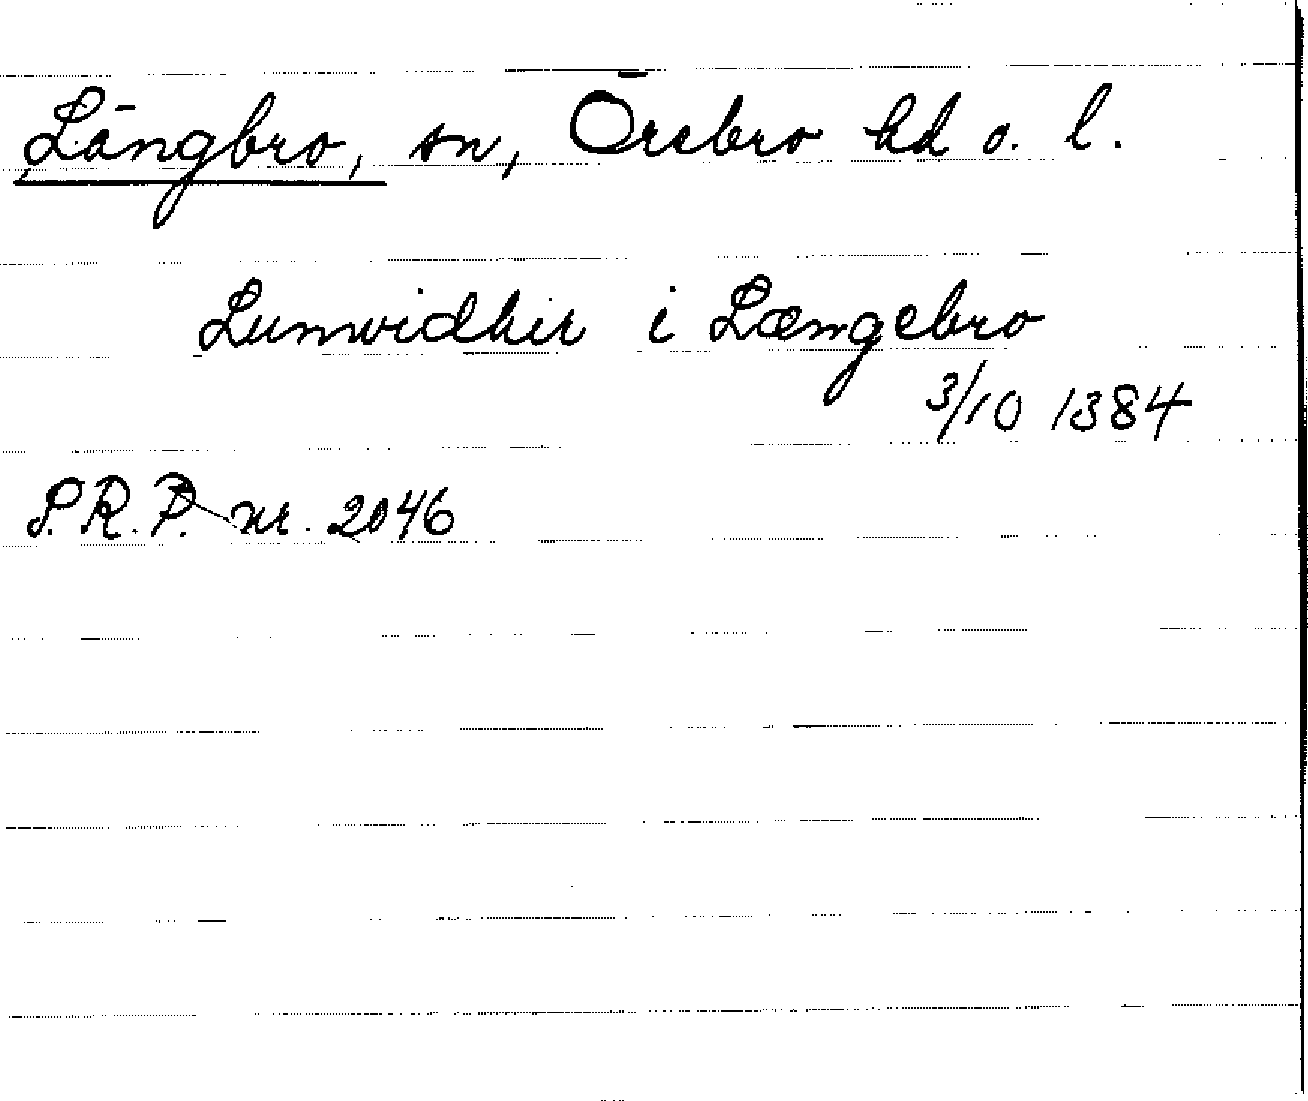 Längbro, sn, Örebro hd o. l.
Lunvidhir i Længebro
3/10 1384
S.R.P. nr. 2046